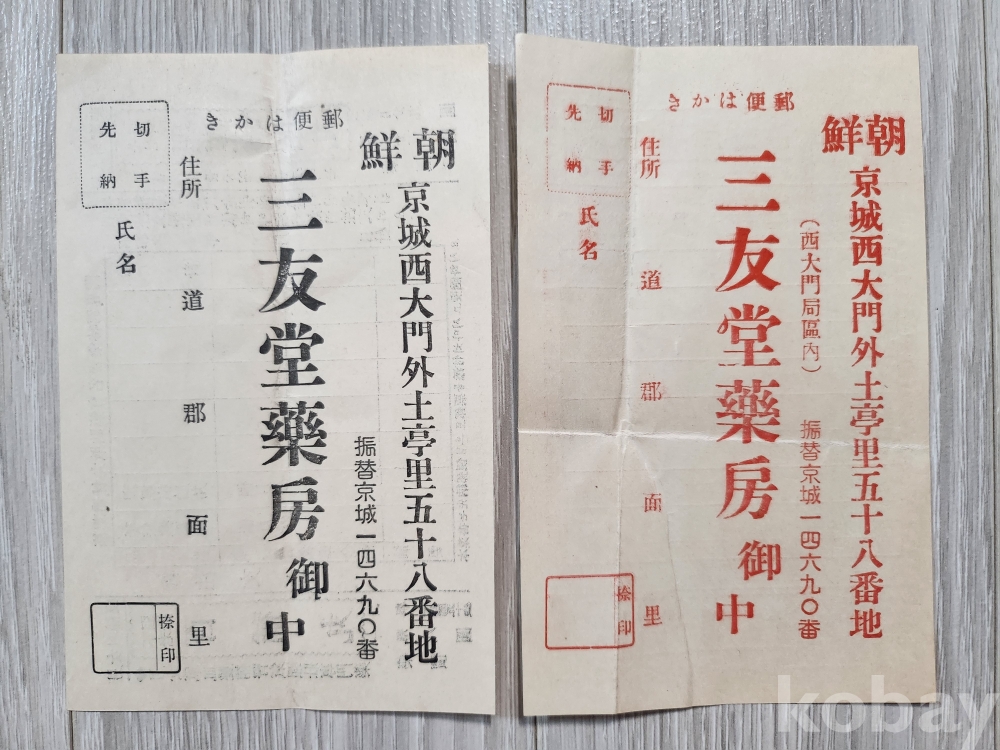 郵便はかき
朝鮮
京城西大門外土亭里五十八番地
振替京城一四六九〇番
三友堂藥房御中
住所 道 郡 面 里
氏名
切手
先納
捺印
郵便はかき
朝鮮
京城西大門外土亭里五十八番地
(西大門局區內)
振替京城一四六九〇番
三友堂藥房御中
住所 道 郡 面 里
氏名
切手
先納
捺印
kobay